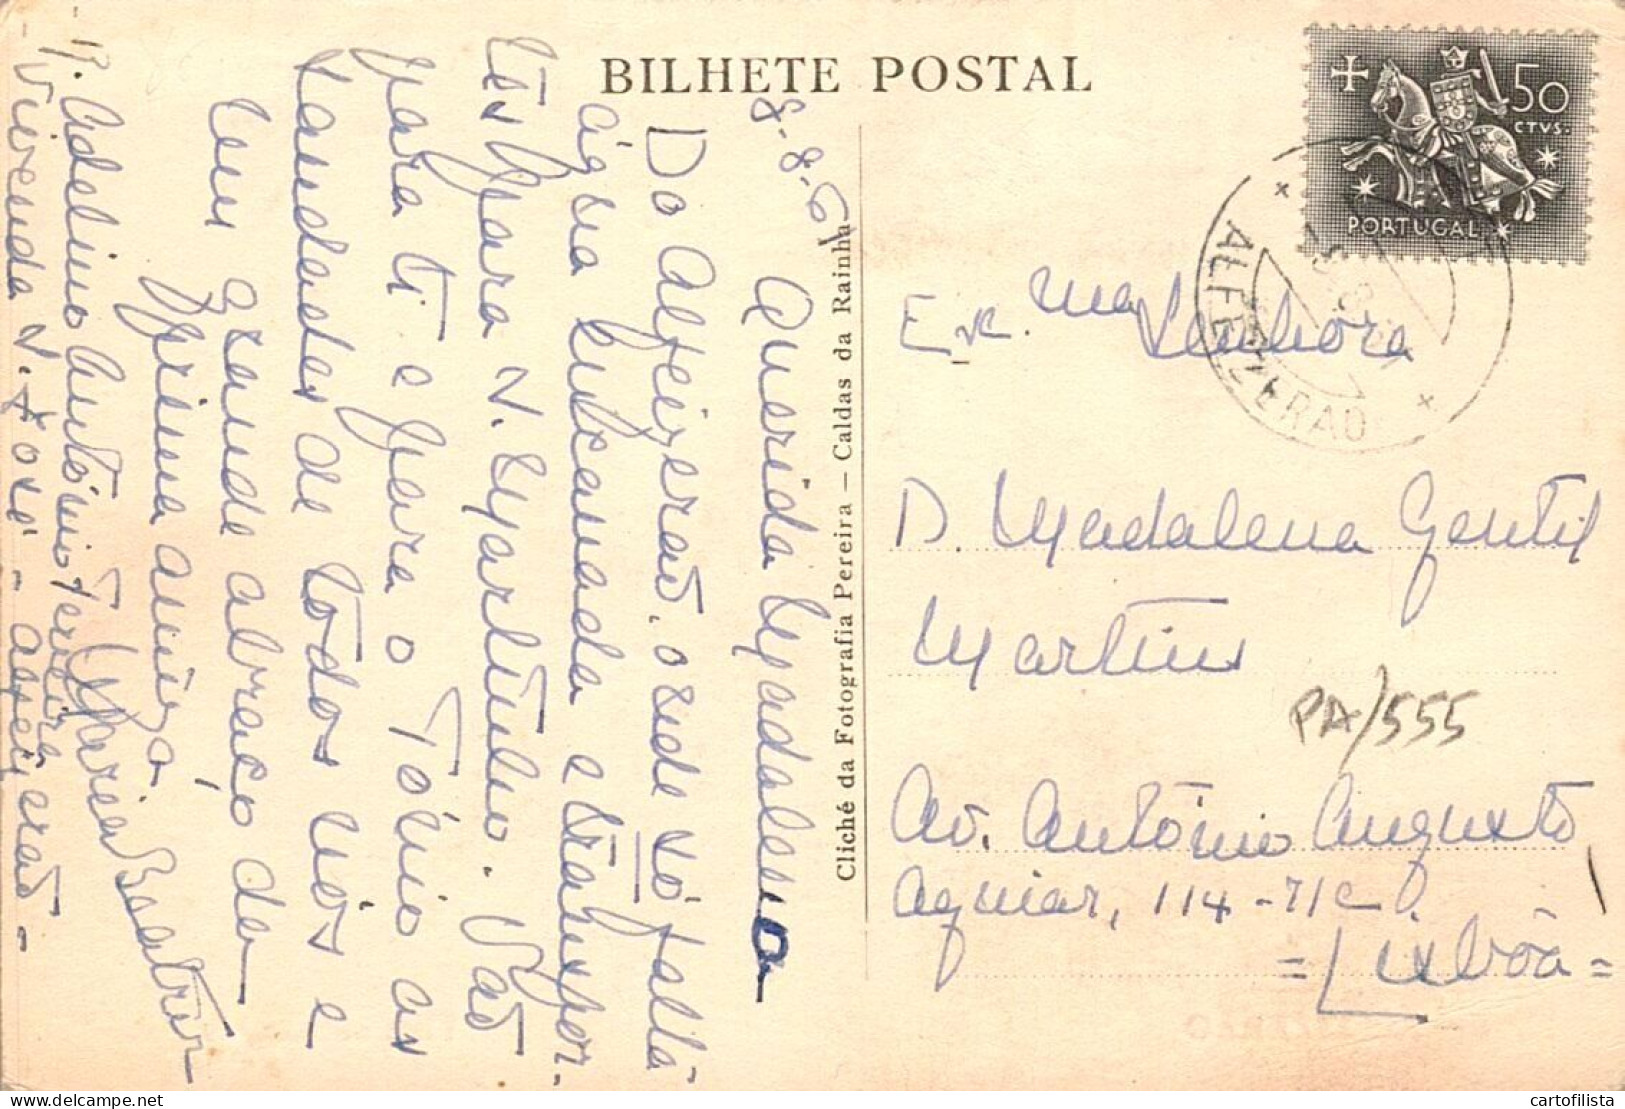 BILHETE POSTAL
8-8-61
Querida Madalena
Do Alfeizerão, onde só falta
água encanada e transpor-
tes para S. Martinho. Vão
para ti e para o Tólio as
saudades de todos nós e
um grande abraço da
prima amiga
Maria Beatriz
R. Adelino António Ferreira
Vivenda S. José - Alfeizerão -
Cliché da Fotografia Pereira — Caldas da Rainha
50
CTVS.
PORTUGAL
ALFEIZERÃO
Ex.ma Senhora
D. Madalena Gentil
Martins
PA/555
Av. António Augusto
Aguiar, 114 - r/c D.
= Lisboa =
www.delcampe.net
cartofilista